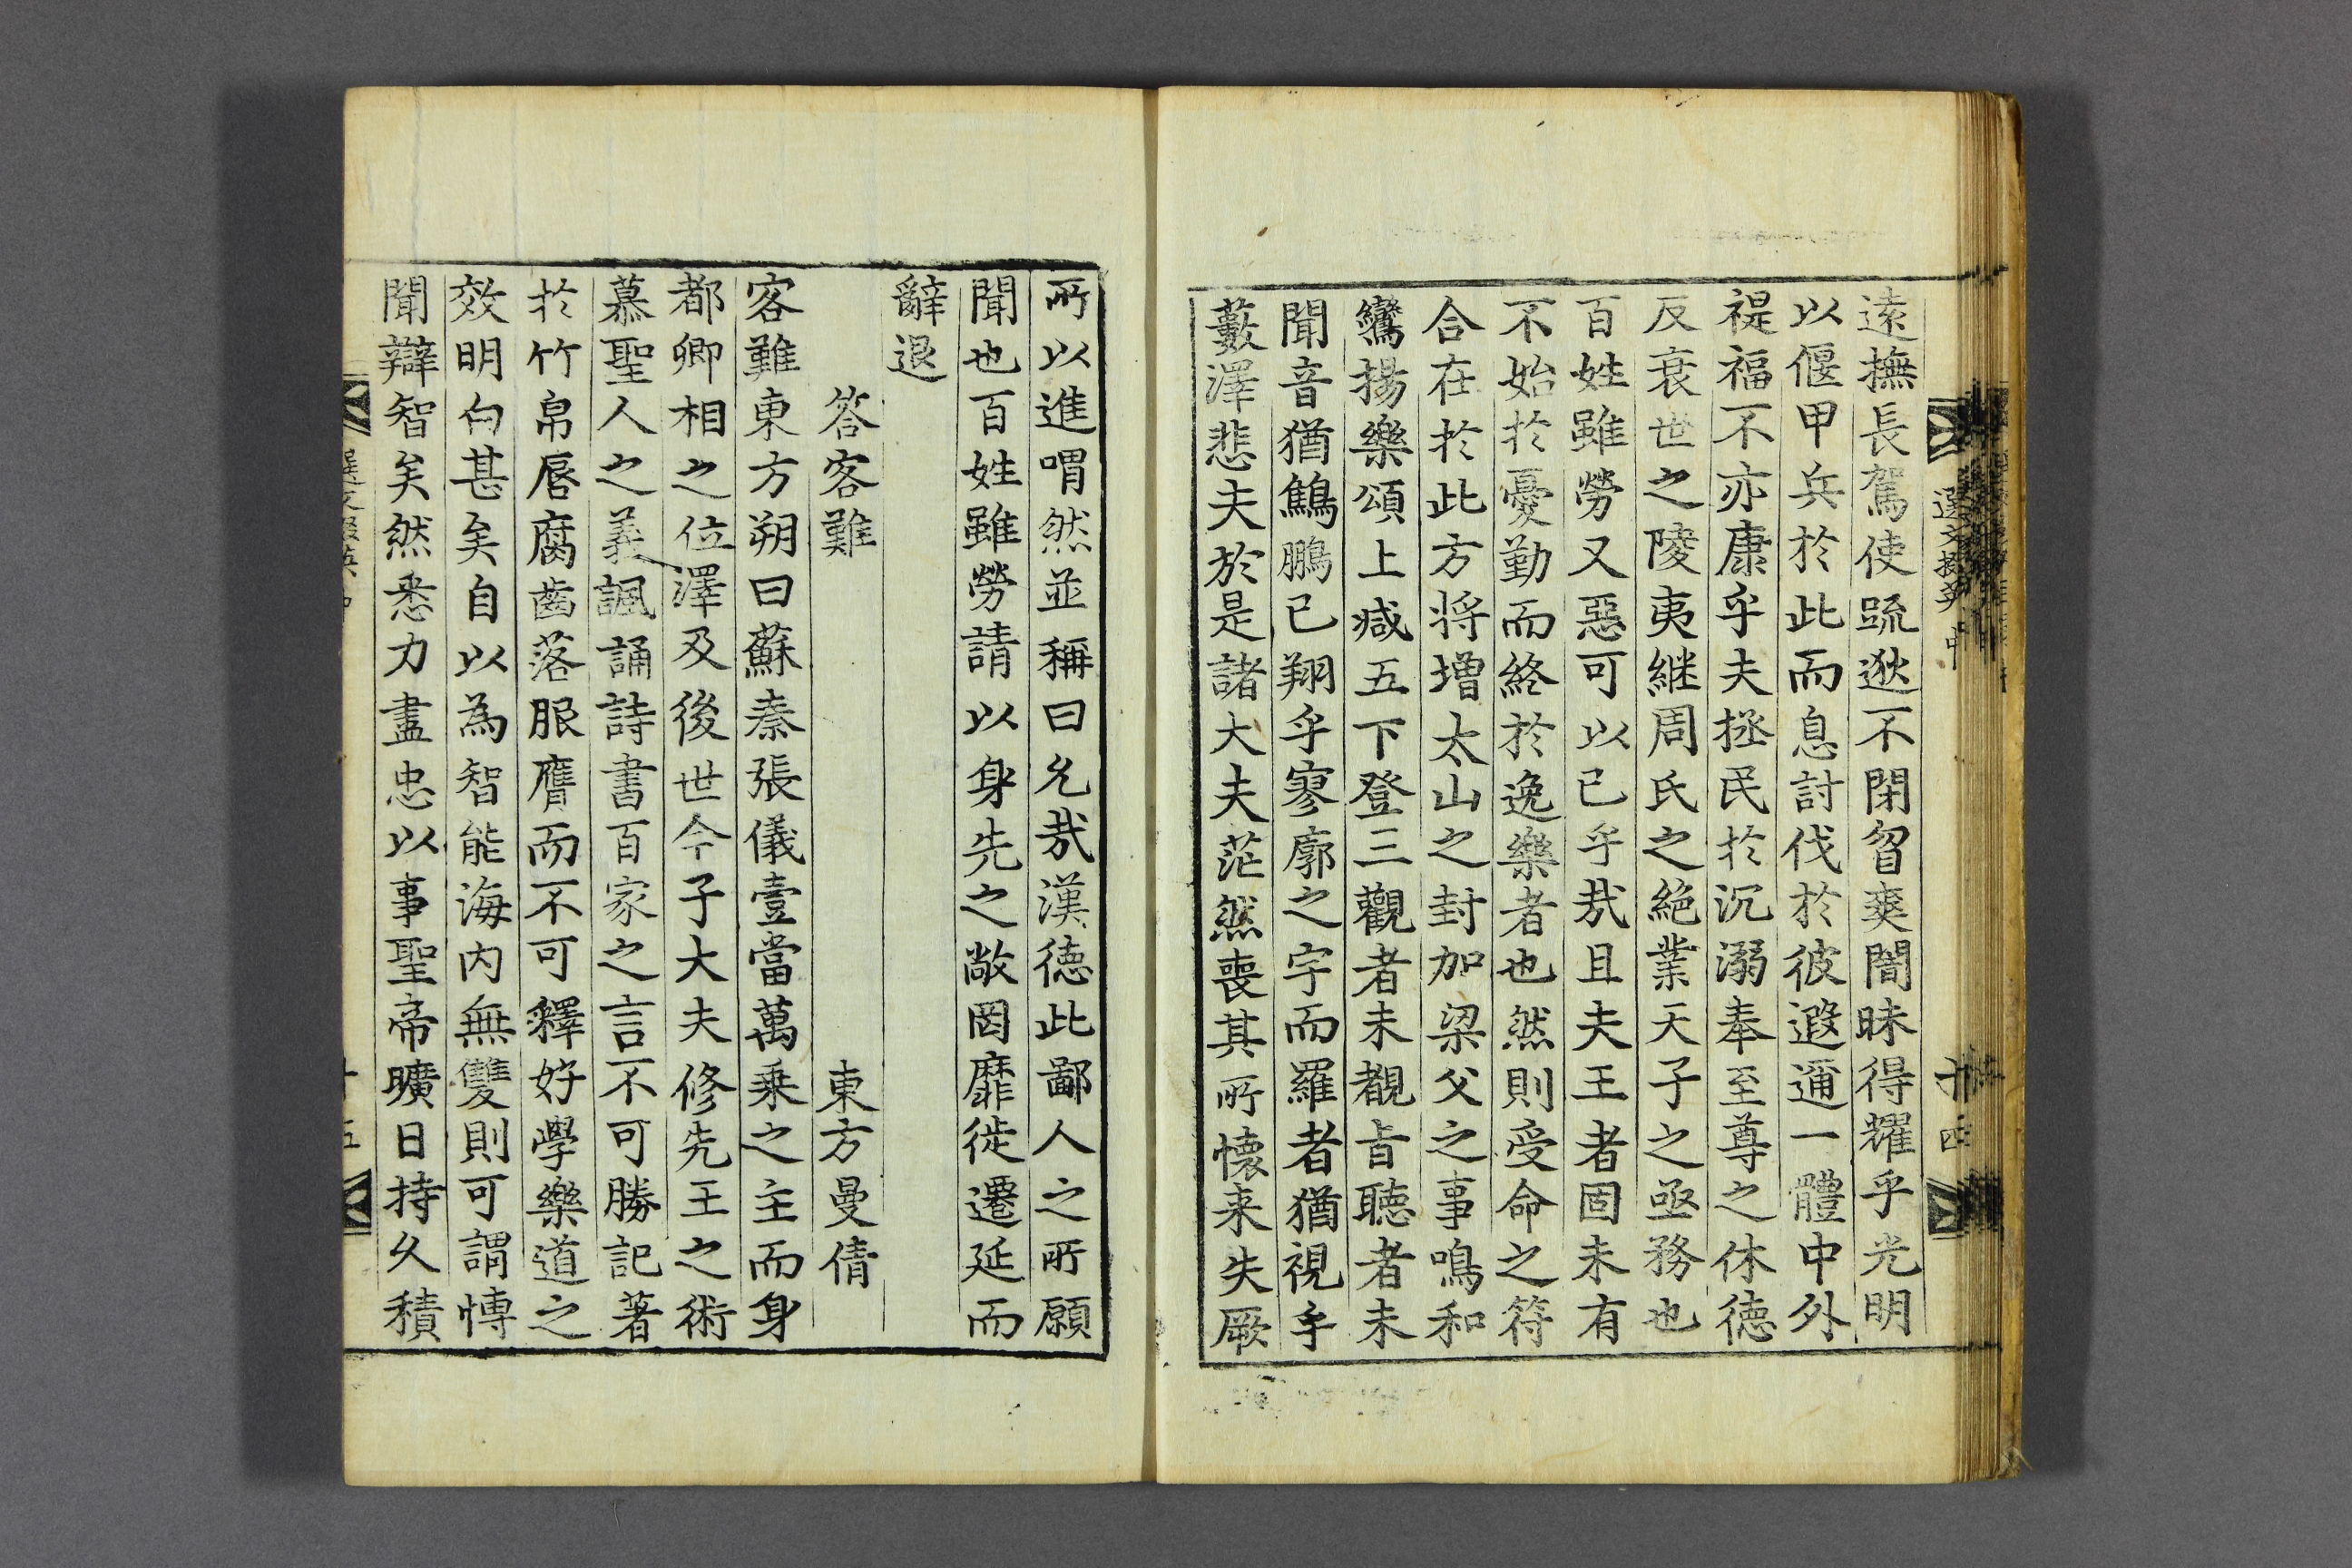 遠撫長駕使䟽逖不閉曶爽闇昧得耀乎光明
以偃甲兵於此而息討伐於彼遐邇一體中外
禔福不亦康乎夫拯民於沉溺奉至尊之休德
反衰世之陵夷継周氏之絶業天子之亟務也
百姓雖勞又惡可以已乎㢤且夫王者固未有
不始於憂勤而終於逸樂者也然則受命之符
合在於此方将增太山之封加梁父之事鳴和
鸞揚樂頌上咸五下登三觀者未覩㫖聽者未
聞音猶鷦鵬已翔乎寥廓之宇而羅者猶視乎
藪澤悲夫於是諸大夫茫然喪其所懷来失厥
選文掇英 中
十四
所以進喟然並稱曰允㢤漢德此鄙人之所願
聞也百姓雖勞請以身先之敞罔靡徙遷延而
辭退
答客難 東方曼倩
客難東方朔曰蘇秦張儀壹當萬乗之主而身
都卿相之位澤及後世今子大夫修先王之術
慕聖人之義諷誦詩書百家之言不可勝記著
於竹帛唇腐齒落服膺而不可釋好學樂道之
效明白甚矣自以為智能海內無雙則可謂愽
聞辯智矣然悉力盡忠以事聖帝曠日持久積
十五